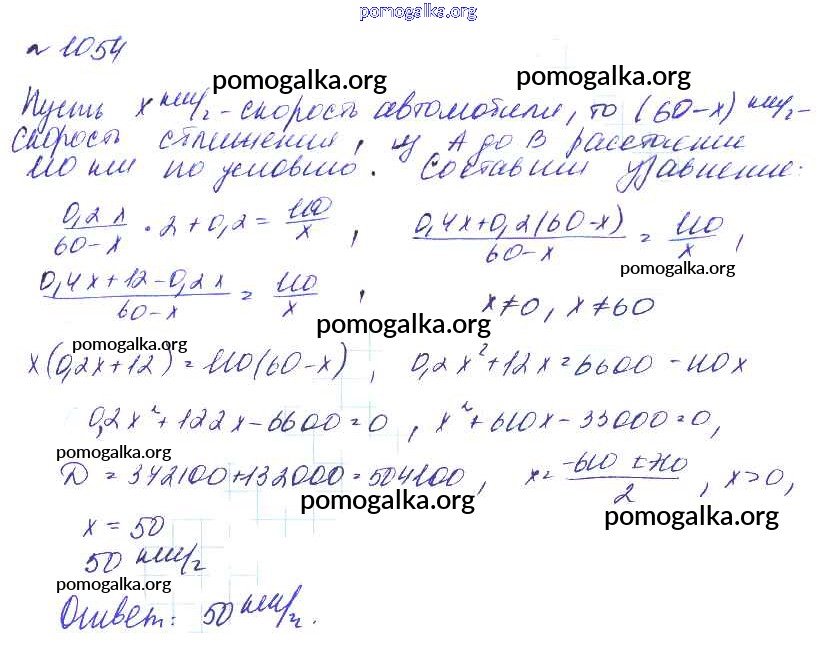 pomogalka.org
№ 1054
pomogalka.org pomogalka.org
Пусть x км/ч - скорость автомобиля, то (60-x) км/ч -
скорость сближения, из A до B расстояние
110 км по условию. Составим уравнение:
0,2x/60-x · 2 + 0,2 = 110/x , 0,4x+0,2(60-x)/60-x = 110/x ,
pomogalka.org
0,4x+12-0,2x/60-x = 110/x , x≠0, x≠60
pomogalka.org
pomogalka.org
x(0,2x+12) = 110(60-x) , 0,2x²+12x=6600-110x
0,2x²+122x-6600=0 , x²+610x-33000=0,
pomogalka.org
Д = 372100+132000=504100, x= -610 ±710/2 , x>0,
pomogalka.org pomogalka.org
x = 50
50 км/ч
pomogalka.org
Ответ: 50 км/ч.